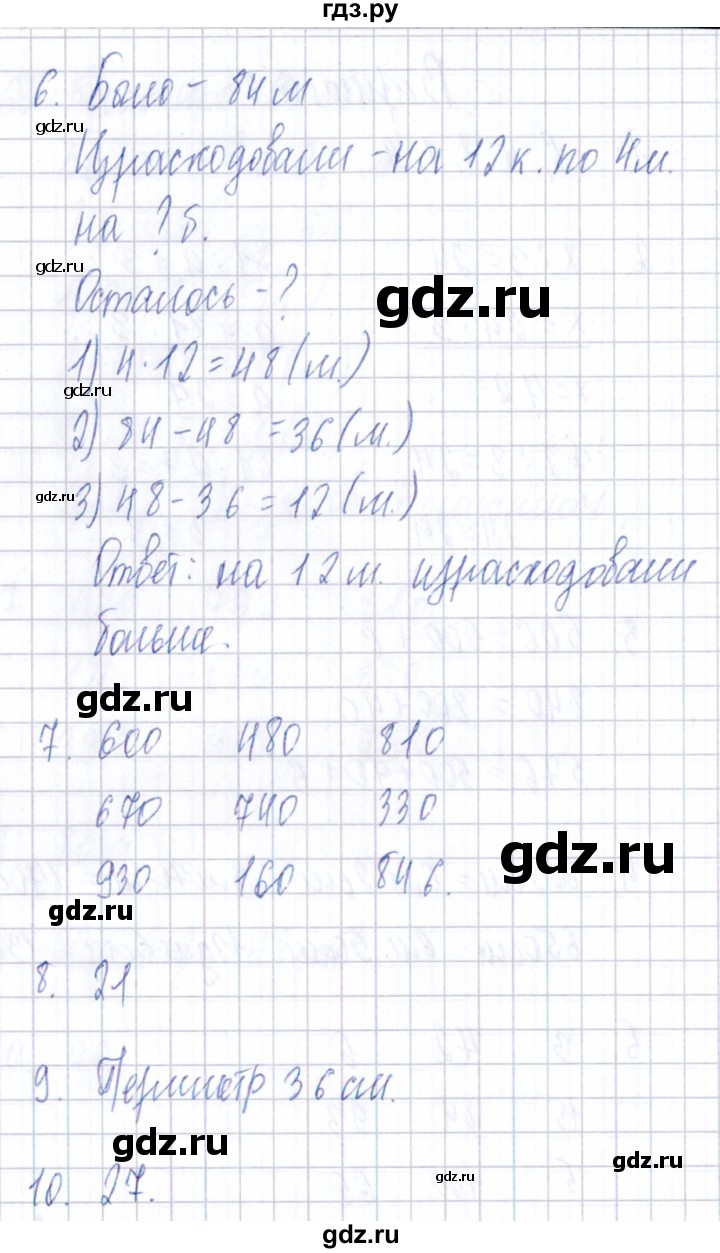 гдз.ру
6. Было - 84 м
gdz.ru
Израсходовали - на 12 к. по 4 м.
на ? б.
gdz.ru
Осталось - ?
gdz.ru
1) 4 · 12 = 48 (м.)
gdz.ru
2) 84 - 48 = 36 (м.)
gdz.ru
3) 48 - 36 = 12 (м.)
Ответ: на 12 м. израсходовали
больше.
gdz.ru
7. 600 480 810
670 740 330
gdz.ru
930 160 846.
gdz.ru
8. 21
9. Периметр 36 см.
gdz.ru
gdz.ru
10. 27.
gdz.ru
gdz.ru